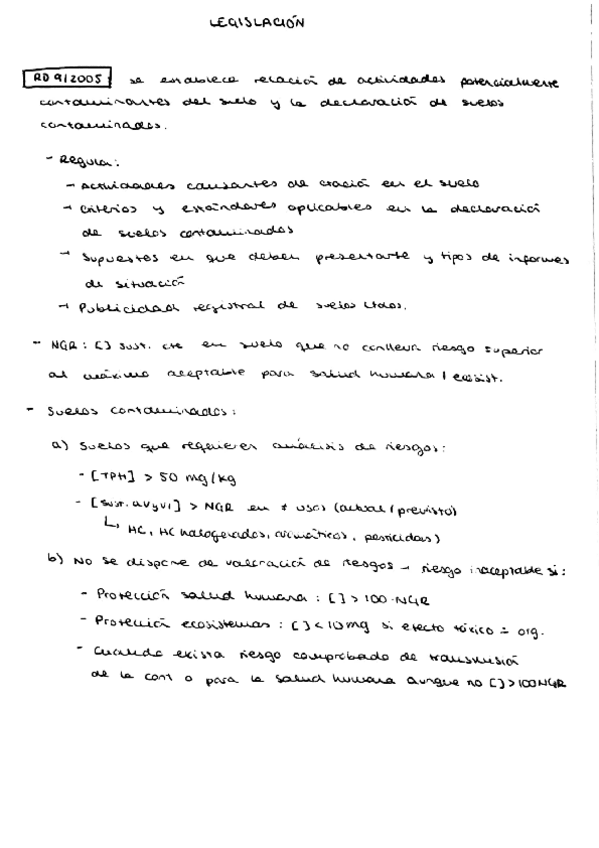 LEGISLACIÓN
RD 9/2005 se establece relación de actividades potencialmente
contaminantes del suelo y la declaración de suelos
contaminados.
- Regula:
→ Actividades causantes de ctación en el suelo
→ Criterios y estándares aplicables en la declaración
de suelos contaminados
→ Supuestos en que deben presentarse y tipos de informes
de situación
→ Publicidad registral de suelos ctdos.
- NGR: [] sust. cte en suelo que no conlleva riesgo superior
al máximo aceptable para salud humana / ecosist.
- Suelos contaminados:
a) Suelos que requieren análisis de riesgos:
- [TPH] > 50 mg/kg
- [sust. aV y VI] > NGR en ≠ usos (actual / previsto)
↳ HC, HC halogenados, aromáticos, pesticidas)
b) No se dispone de valoración de riesgos → riesgo inaceptable si:
- Protección salud humana: [] > 100·NGR
- Protección ecosistemas: [] < 10 mg si efecto tóxico = org.
- Cuando exista riesgo comprobado de transmisión
de la cont o para la salud humana aunque no [] > 100NGR